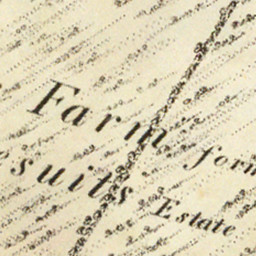 Farm form
suits Estate